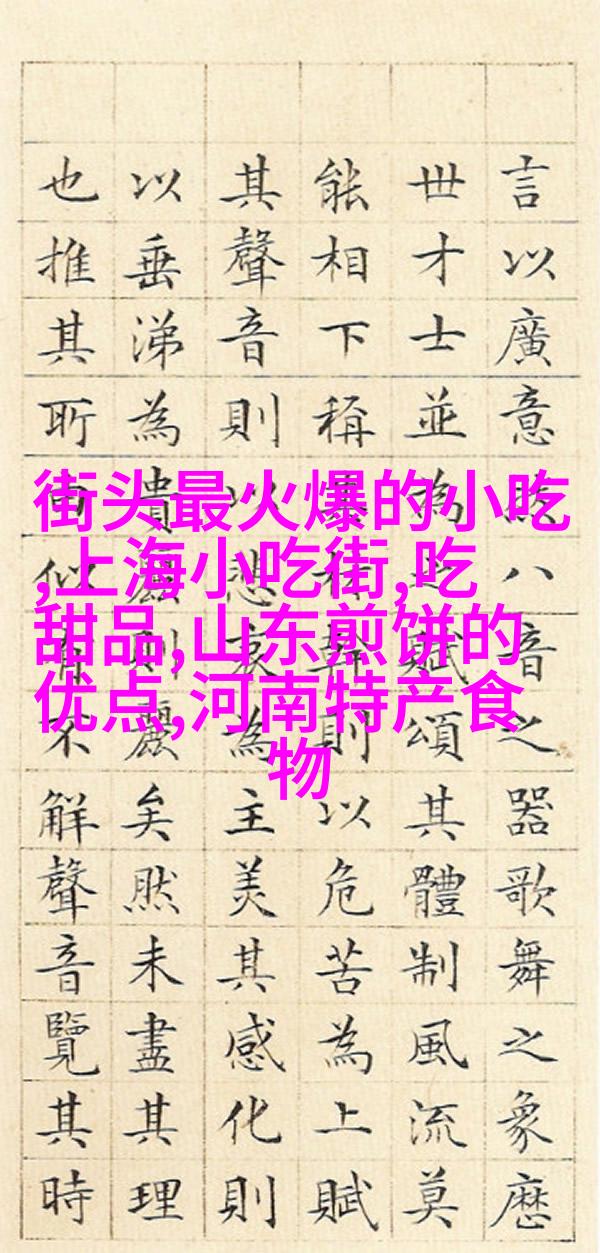 言以廣意然八音之器歌舞之象歷
世才士並為之賦頌其體制風流莫
能相下稱材幹則以危苦為上賦
其聲音則以悲哀為主美其感化則
以垂涕為貴麗則麗矣然未盡其理
也推其所由似有不解聲音覽其時
街头最火爆的小吃
,上海小吃街,吃
甜品,山东煎饼的
优点,河南特产食
物